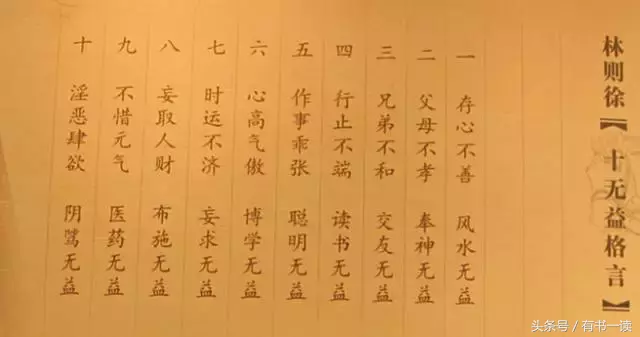 林则徐【十无益格言】
一 存心不善 风水无益
二 父母不孝 奉神无益
三 兄弟不和 交友无益
四 行止不端 读书无益
五 作事乖张 聪明无益
六 心高气傲 博学无益
七 时运不济 妄求无益
八 妄取人财 布施无益
九 不惜元气 医药无益
十 淫恶肆欲 阴骘无益
头条号 / 有书一读